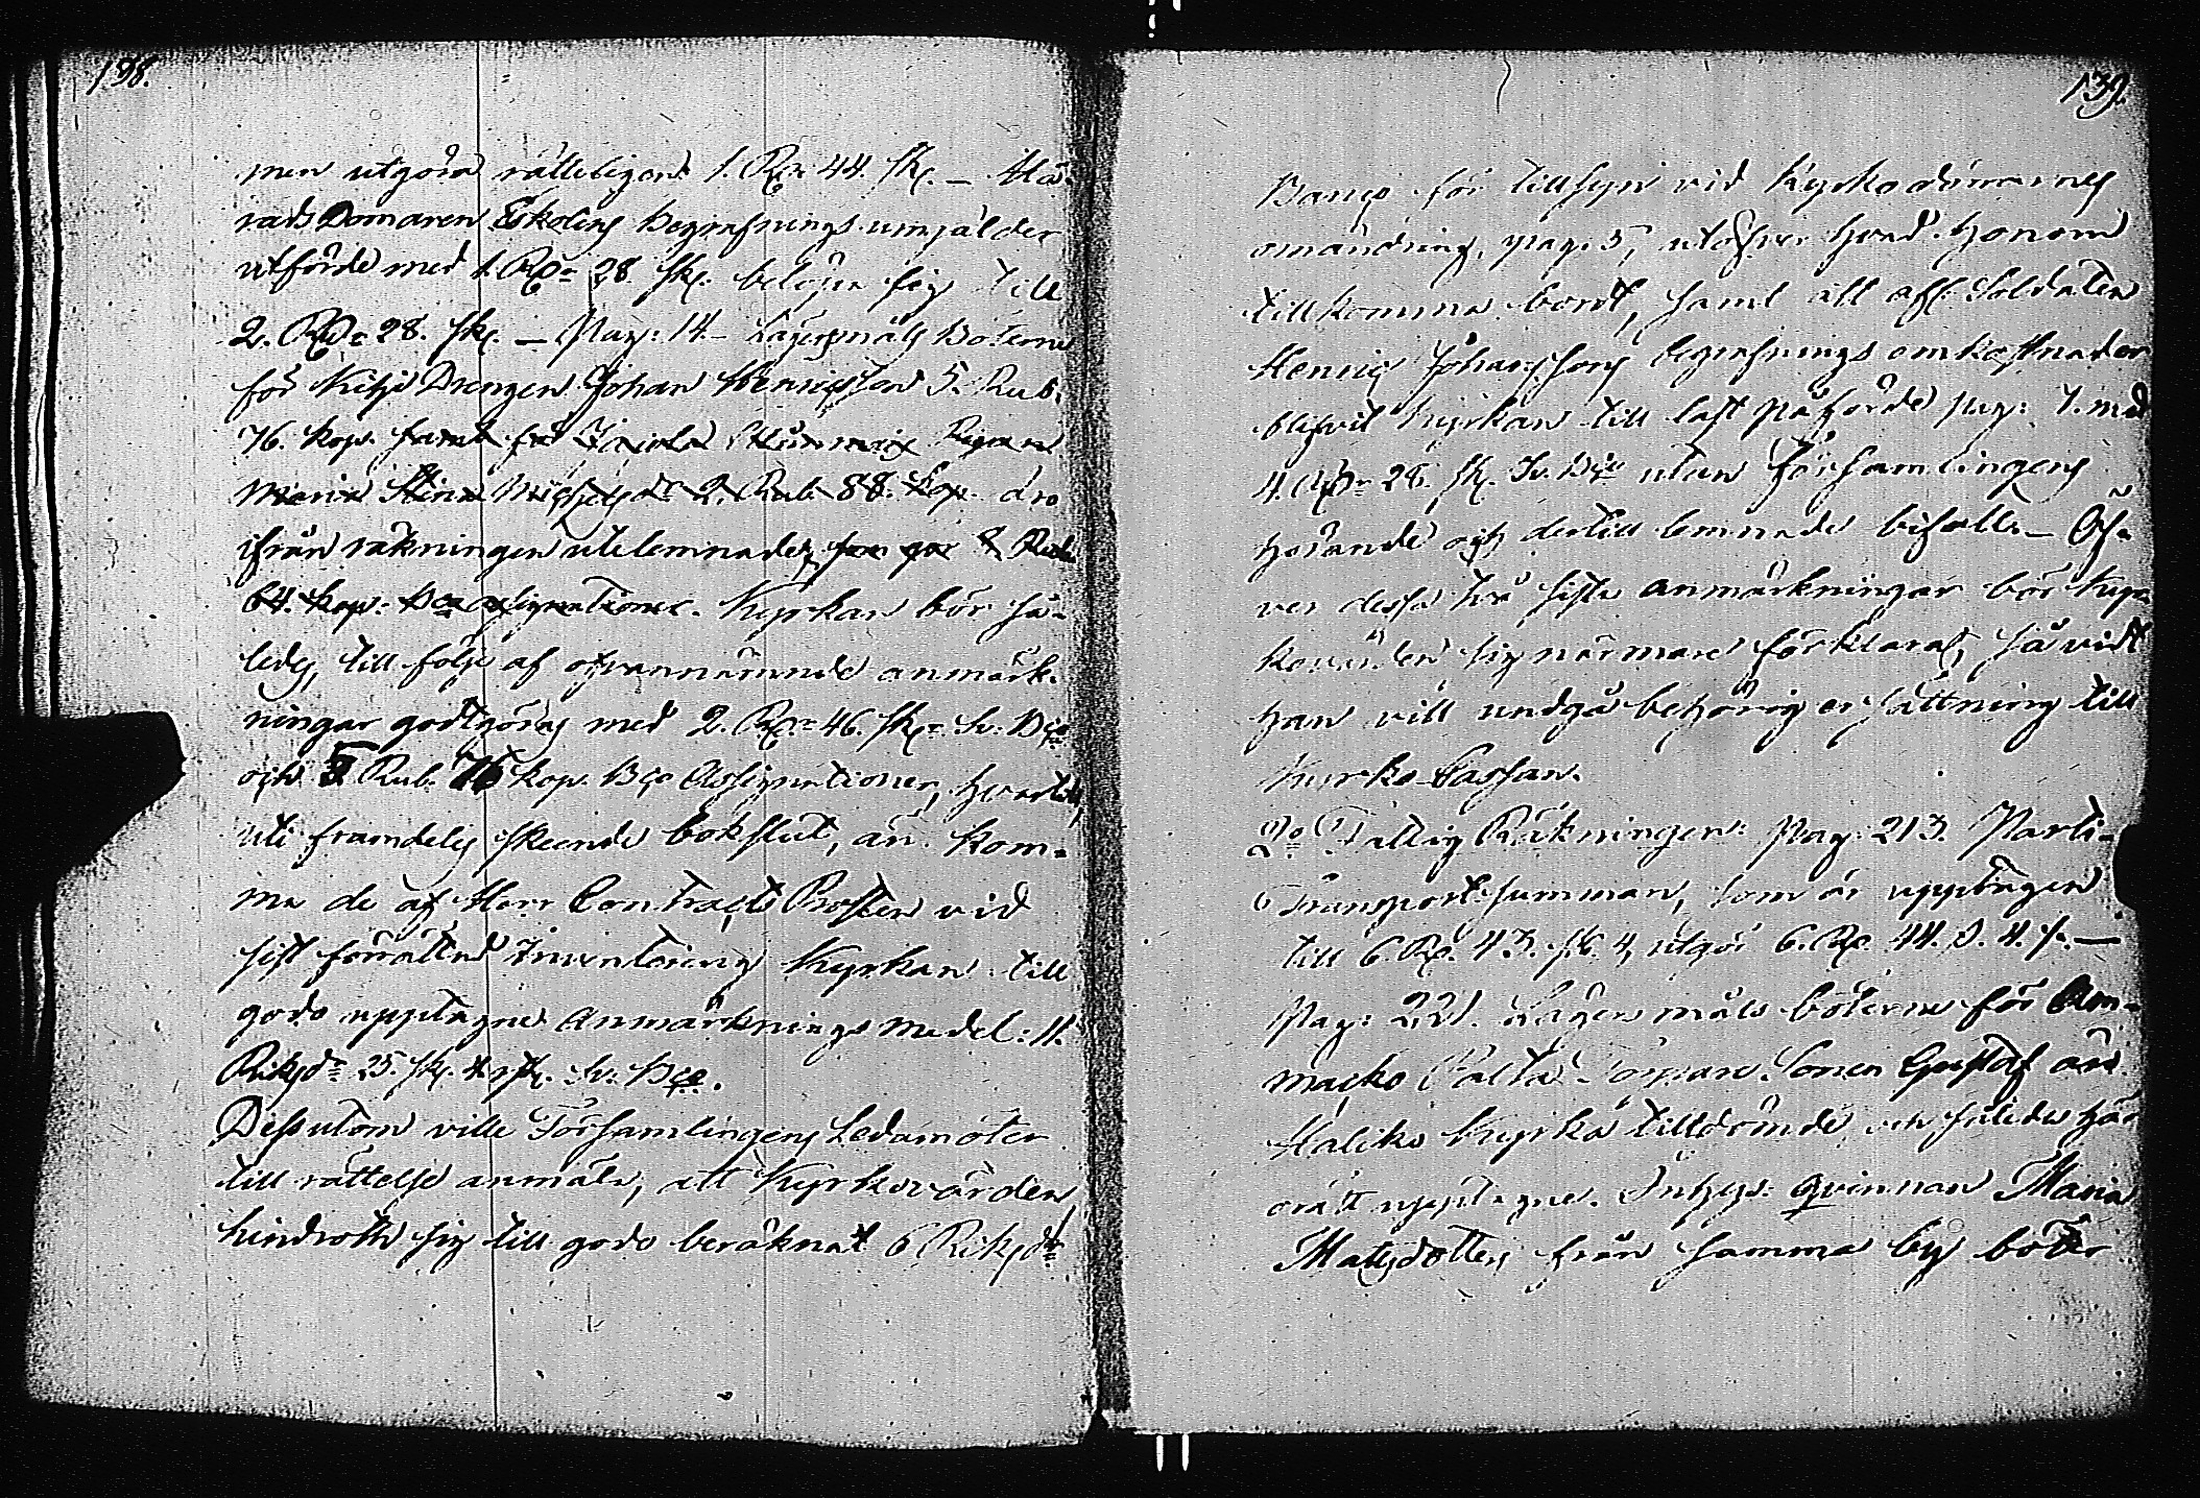 138.
men utgöra rätteligen 1. Rd. 44. sk. — Hä-
rads Domaren Eskolins Begrafnings umgälder
utförde med 1. Rd. 28. sk. belöpa sig till
2. Rd. 28. sk. — Pag: 14. Lägersmåls Böterne
för Drengen Johan Henricsson 5. Rub.
76. kop. samt från Pigan
Maria Stina Michelsdr 2. Rub. 88. kop. äro
ifrån räkningen utelemnade, som gör 8 Rub.
64. kop. Bco Assignationer. Kyrkan bör så-
ledes, till följe af ofvannämnde anmärk-
ningar godtgöras med 2. Rd. 46. sk. Sv. Bco
och 5 Rub. 76 kop. Bco Assignationer, hvartill,
uti framdeles skeende bokslut, än kom-
ma de af Herr Contracts Prosten vid
sist förrättad Inventering Kyrkan till
godo upptagne Anmärknings medel: 11.
Riksdr 25. sk. 4 rst. Sv. Bco.
Dessutom ville Församlingens Ledamöter
till rättelse anmäla, att Kyrkovärden
Lindroth sig till godo beräknat 6 Riksdr
139.
Banco för tillsyn vid Kyrkodörrarnes
omändring, pag. 5, utöfver hvad honom
tillkomma bordt, samt att afl. Soldaten
Henric Johanssons begrafnings omkostnader
blifvit Kyrkan till last påförde pag: 7. med
4. Rdr 28. sk. Sv. Bco utan Församlingens
hörande och dertill lemnade bifall. — Öf-
ver dessa två sista anmärkningar bör Kyr-
kovärden sig närmare förklara, så vidt
han vill undgå behörig ersättning till
Kyrko-Cassan.
2o Fattig Räkningen: Pag: 213. Parti-
Transport-summan, som är upptagen
till 6 Rd. 43. sk. 4, utgör 6. Rd. 44. s. 4. r. —
Pag: 221. Lägersmåls böterne för Am-
masko Sonen Gustaf äro
Haliko Kyrka tilldömde och således här
orätt upptagne. Inhys. Qvinnan Maria
Matsdotters från samma by böter